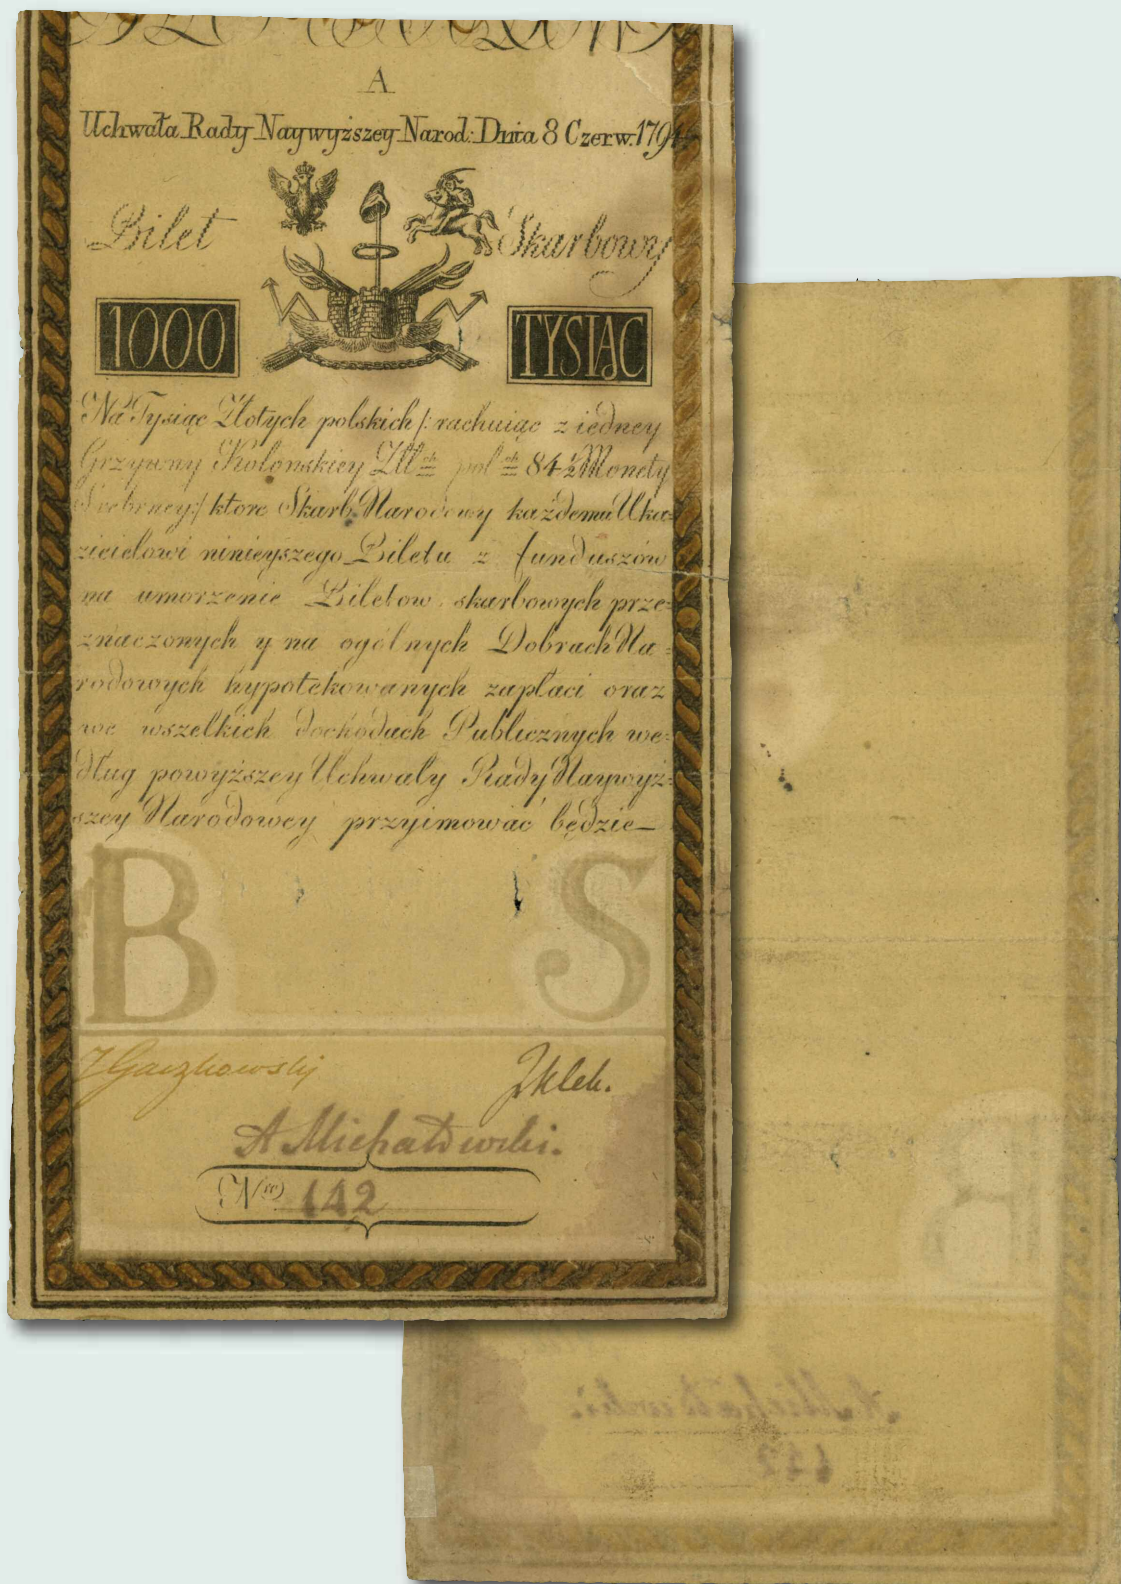 A
Uchwała Rady Naywyższey Narod: Dnia 8 Czerw. 1794
Bilet Skarbowy
1000 TYSIĄC
Na Tysiąc Złotych polskich /: rachuiąc z iedney
Grzywny Kolońskiey Zll ch pol ch 84 1/2 Monety
Srebrney :/ ktore Skarb Narodowy każdemu Uka=
zicielowi ninieyszego Biletu z funduszów
na umorzenie Biletow skarbowych prze=
znaczonych y na ogólnych Dobrach Na=
rodowych hypotekowanych zapłaci oraz
we wszelkich dochodach Publicznych we=
dług powyższey Uchwały Rady Naywyż=
szey Narodowey przyimować będzie—
B S
J Gaczkowski JKlek.
A Michałowski.
N ro 142